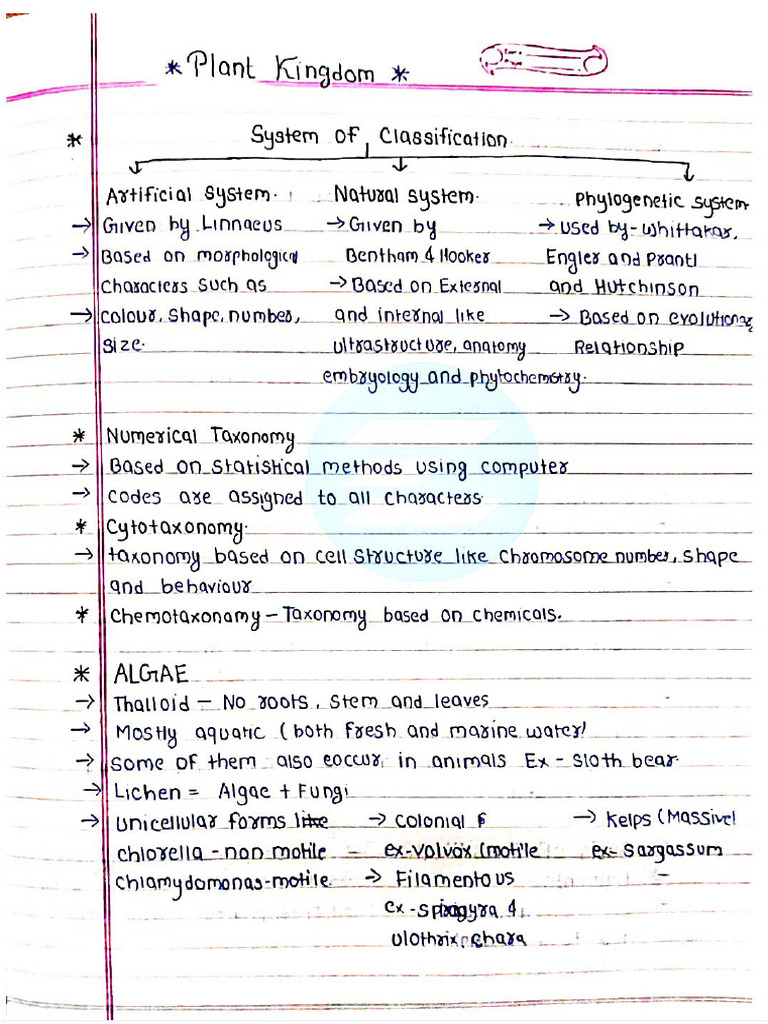 * Plant Kingdom *
* System of Classification.
Artificial System.
→ Given by Linnaeus
→ Based on morphological
Characters such as
→ colour, shape, number,
size.
Natural system.
→ Given by
Bentham & Hooker
→ Based on External
and internal like
ultrastructure, anatomy
embryology and phytochemistry.
Phylogenetic system
→ used by - Whittakar,
Engler and Prantl
and Hutchinson
→ Based on evolutionary
Relationship
* Numerical Taxonomy
→ Based on statistical methods using computer
→ codes are assigned to all characters.
* Cytotaxonomy.
→ taxonomy based on cell structure like Chromosome number, shape
and behaviour
* Chemotaxonamy - Taxonomy based on chemicals.
* ALGAE
→ Thalloid - No roots, stem and leaves
→ Mostly aquatic (both fresh and marine water)
→ some of them also eoccur in animals Ex - sloth bear.
→ Lichen = Algae + Fungi
→ unicellular forms like
chlorella - non motile
chlamydomonas - motile.
→ colonial
ex - volvox (motile
→ Filamentous
ex - spirogyra &
ulothrix, chara
→ Kelps (Massive)
ex - sargassum